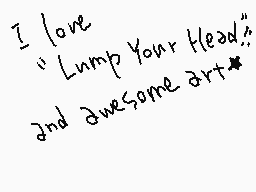 I love
"Lump Your Head!!"
and awesome art★